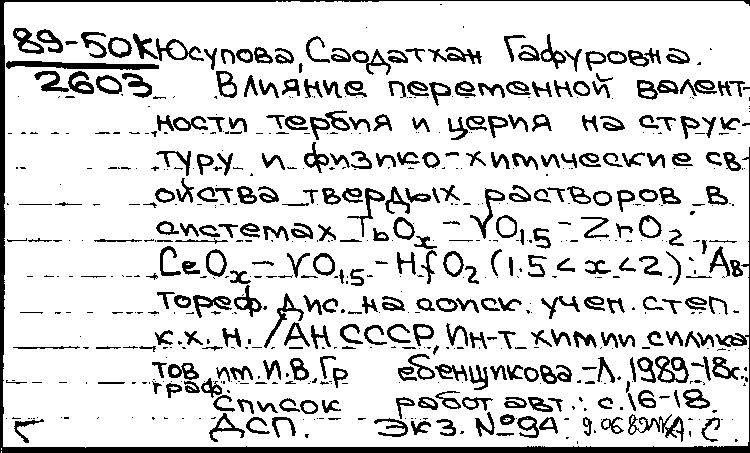 89-50К Юсупова, Саодатхан Гафуровна.
2603 Влияние переменной валент-
ности тербия и церия на струк-
туру и физико-химические св-
ойства твердых растворов в
системах TbOx – YO1.5 – ZrO2,
CeOx – YO1.5 – HfO2 (1.5 < x < 2): Ав-
тореф. дис. на соиск. учен. степ.
к.х.н. / АН СССР, Ин-т химии силика
тов им. И.В. Гр ебенщикова. – Л., 1989 – 18с.:
граф.
Список работ авт.: с. 16-18.
ДСП. Экз. №94.